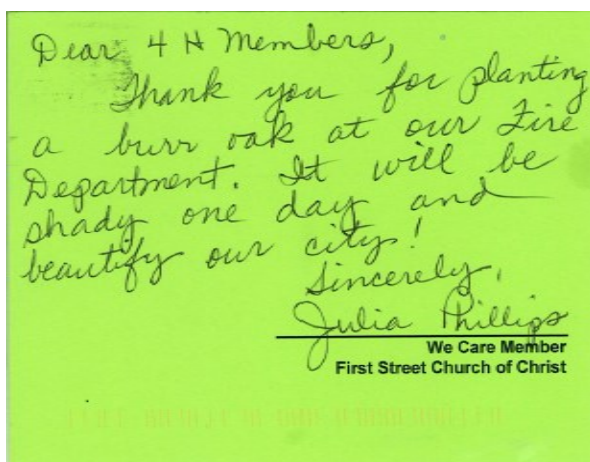 Dear 4 H Members,
Thank you for planting
a burr oak at our Fire
Department. It will be
shady one day and
beautify our city!
Sincerely,
Julia Phillips
We Care Member
First Street Church of Christ